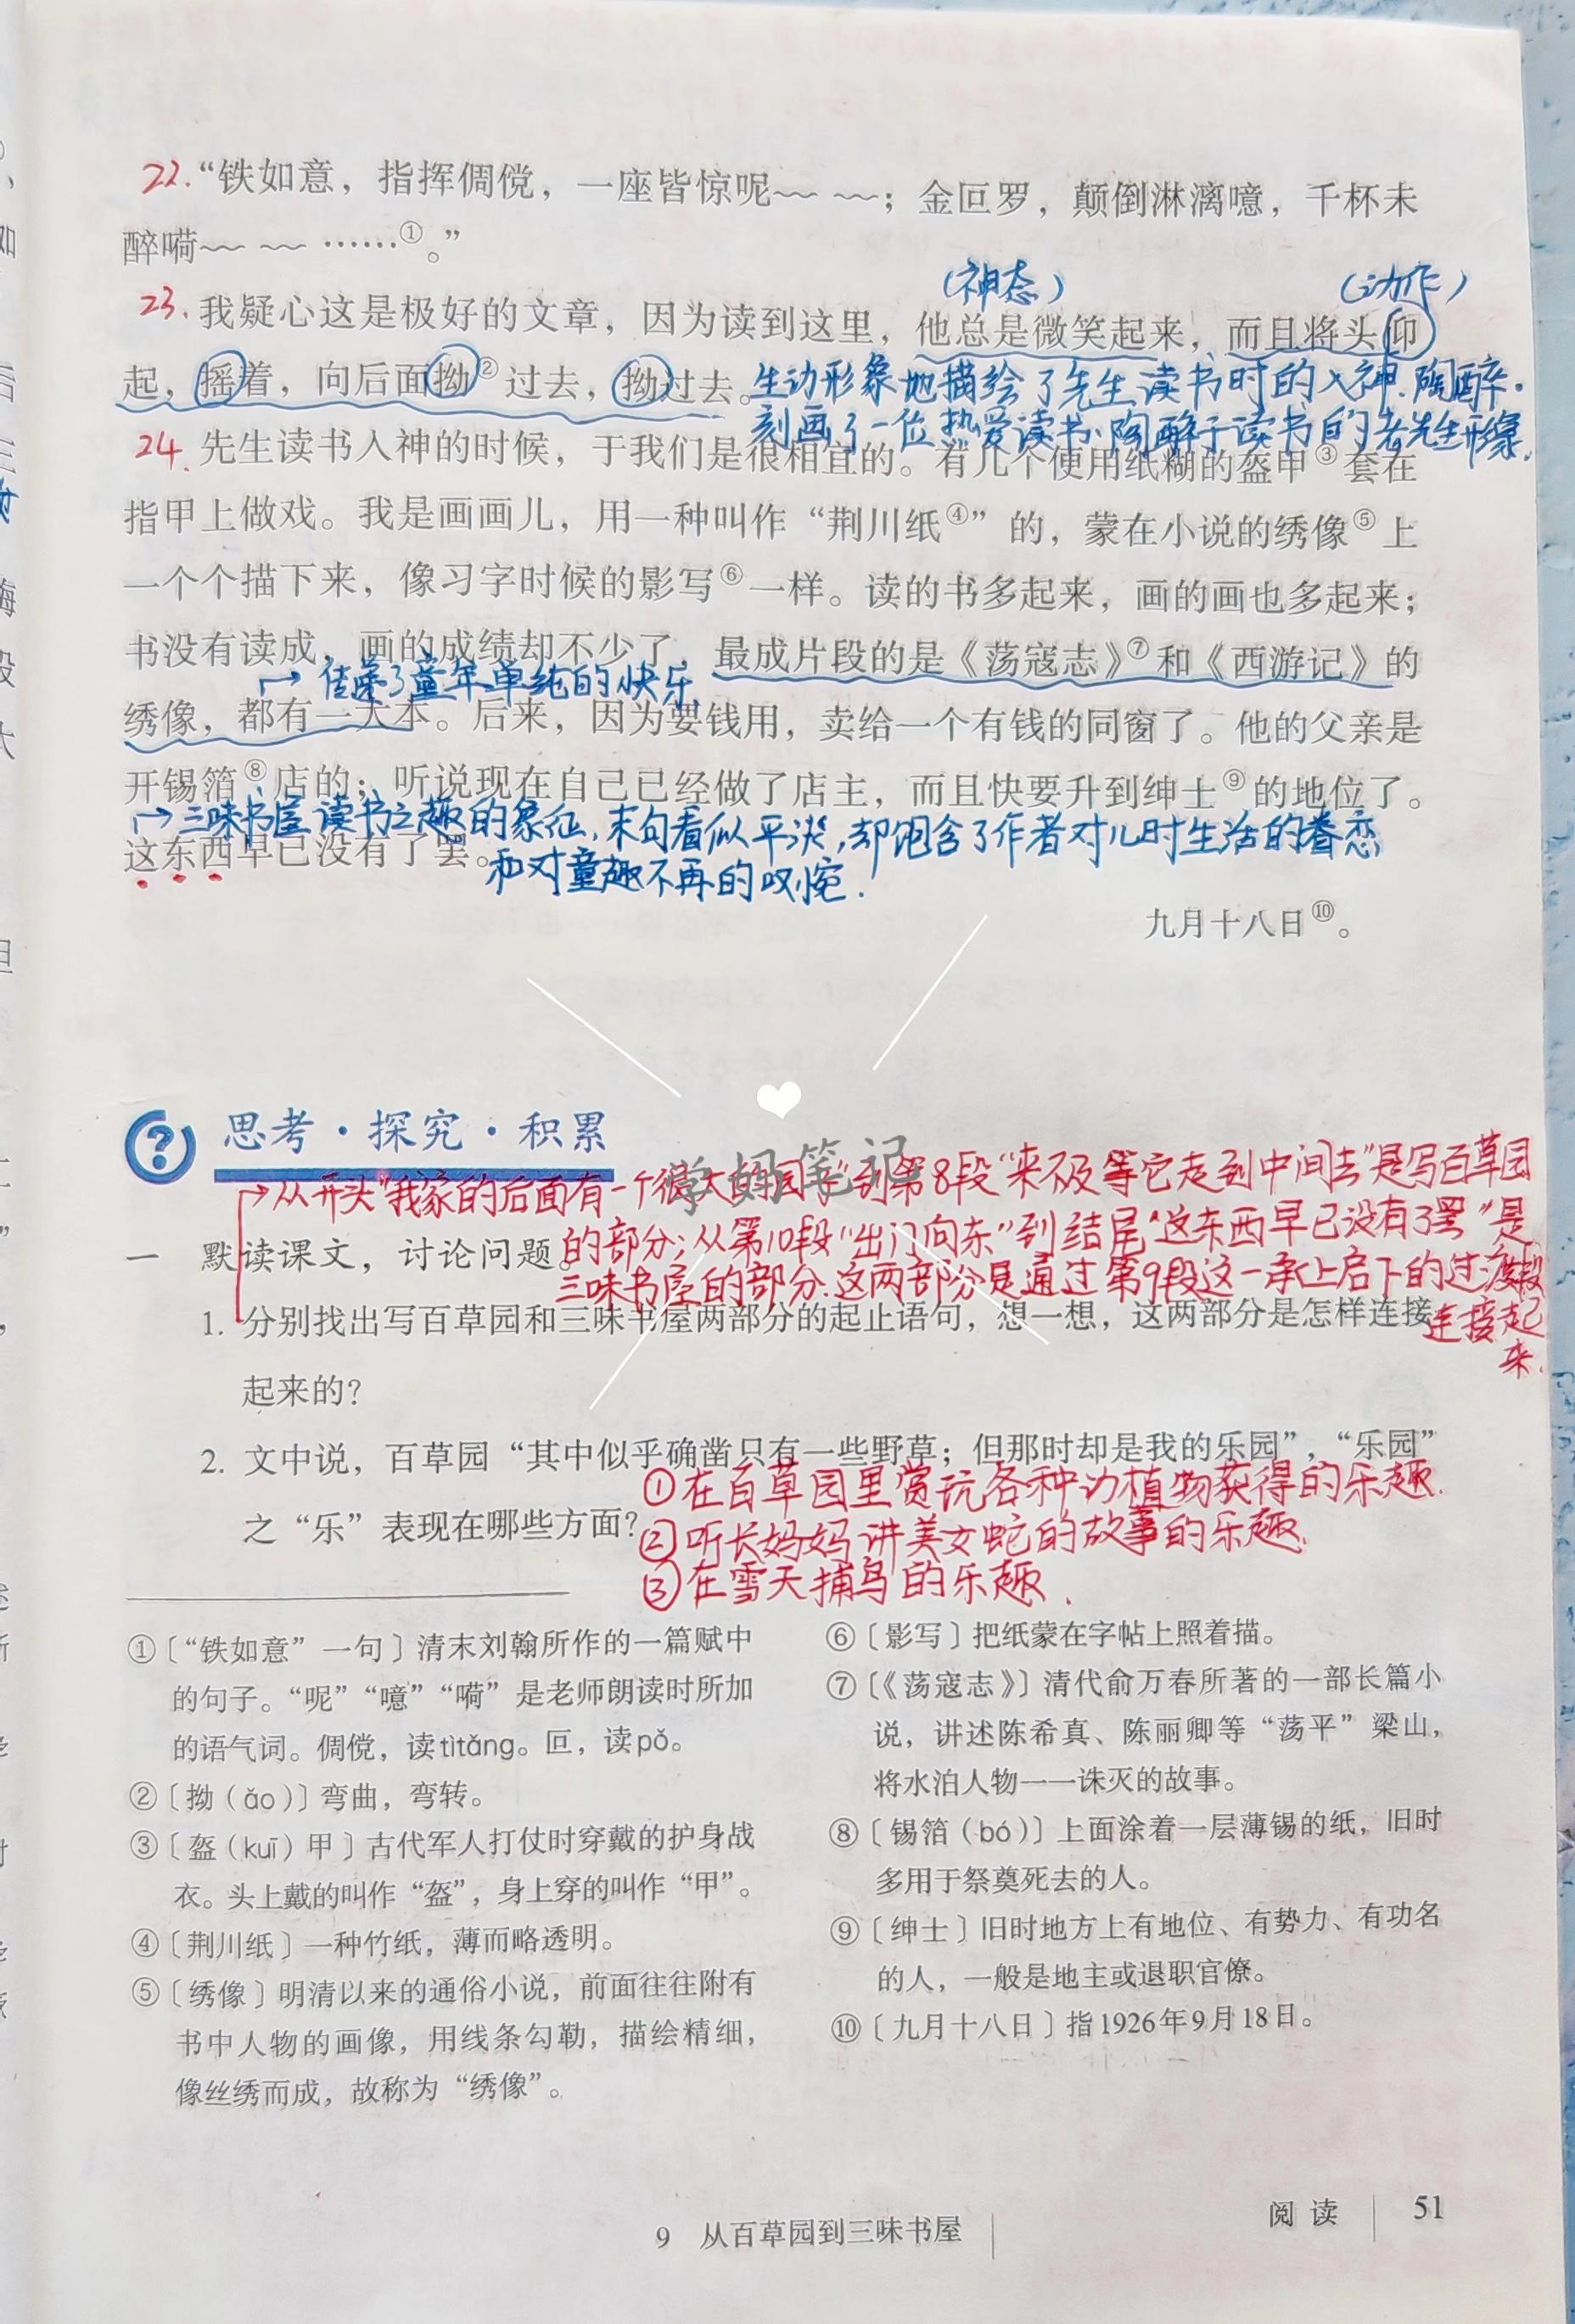 22.“铁如意，指挥倜傥，一座皆惊呢～～ ～～；金叵罗，颠倒淋漓噫，千杯未
醉嗬～～ ～～ ……①。”
(神态)
(动作)
23.我疑心这是极好的文章，因为读到这里，他总是微笑起来，而且将头仰
起，摇着，向后面拗②过去，拗过去。
生动形象地描绘了先生读书时的入神、陶醉。
刻画了一位热爱读书、陶醉于读书的老先生形象.
24.先生读书入神的时候，于我们是很相宜的。有几个便用纸糊的盔甲③套在
指甲上做戏。我是画画儿，用一种叫作“荆川纸④”的，蒙在小说的绣像⑤上
一个个描下来，像习字时候的影写⑥一样。读的书多起来，画的画也多起来；
书没有读成，画的成绩却不少了，最成片段的是《荡寇志》⑦和《西游记》的
→ 了童年单纯的快乐
绣像，都有一大本。后来，因为要钱用，卖给一个有钱的同窗了。他的父亲是
开锡箔⑧店的；听说现在自己已经做了店主，而且快要升到绅士⑨的地位了。
→三味书屋读书之趣的象征,末句看似平淡,却饱含了作者对儿时生活的眷恋
这东西早已没有了罢。
和对童趣不再的叹惋.
九月十八日⑩。
思考·探究·积累
学妈笔记
→从开头“我家的后面有一个很大的园子”到第8段“来不及等它走到中间去”是写百草园
的部分;从第10段“出门向东”到结尾“这东西早已没有了罢”是
一 默读课文，讨论问题。
三味书屋的部分.这两部分是通过第9段这一承上启下的过渡段
连接起
来.
1. 分别找出写百草园和三味书屋两部分的起止语句，想一想，这两部分是怎样连接
起来的？
2. 文中说，百草园“其中似乎确凿只有一些野草；但那时却是我的乐园”，“乐园”
之“乐”表现在哪些方面？
①在百草园里赏玩各种动植物获得的乐趣.
②听长妈妈讲美女蛇的故事的乐趣.
③在雪天捕鸟的乐趣.
①〔“铁如意”一句〕清末刘翰所作的一篇赋中
的句子。“呢”“噫”“嗬”是老师朗读时所加
的语气词。倜傥，读tìtǎng。叵，读pǒ。
②〔拗（ǎo）〕弯曲，弯转。
③〔盔（kuī）甲〕古代军人打仗时穿戴的护身战
衣。头上戴的叫作“盔”，身上穿的叫作“甲”。
④〔荆川纸〕一种竹纸，薄而略透明。
⑤〔绣像〕明清以来的通俗小说，前面往往附有
书中人物的画像，用线条勾勒，描绘精细，
像丝绣而成，故称为“绣像”。
⑥〔影写〕把纸蒙在字帖上照着描。
⑦〔《荡寇志》〕清代俞万春所著的一部长篇小
说，讲述陈希真、陈丽卿等“荡平”梁山，
将水泊人物一一诛灭的故事。
⑧〔锡箔（bó）〕上面涂着一层薄锡的纸，旧时
多用于祭奠死去的人。
⑨〔绅士〕旧时地方上有地位、有势力、有功名
的人，一般是地主或退职官僚。
⑩〔九月十八日〕指1926年9月18日。
9 从百草园到三味书屋
阅读 51